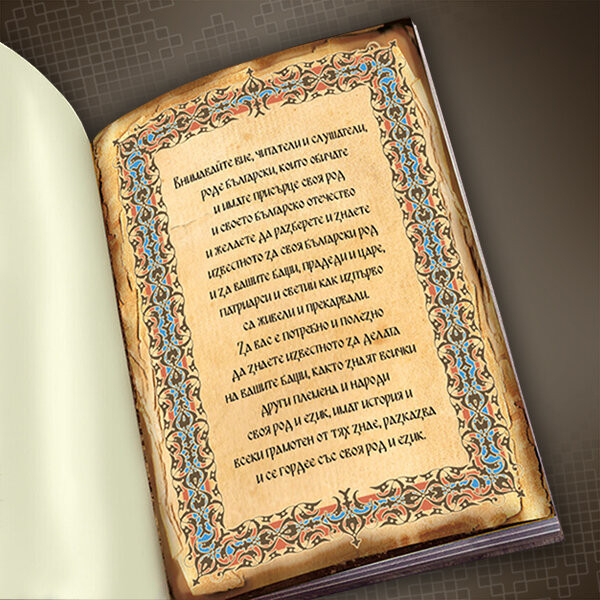 Внимавайте вие, читатели и слушатели,
роде български, които обичате
и имате присърце своя род
и своето българско отечество
и желаете да разберете и знаете
известното за своя български род
и за вашите бащи, прадеди и царе,
патриарси и светии как изпърво
са живели и прекарвали.
За вас е потребно и полезно
да знаете известното за делата
на вашите бащи, както знаят всички
други племена и народи
своя род и език, имат история и
всеки грамотен от тях знае, разказва
и се гордее със своя род и език.